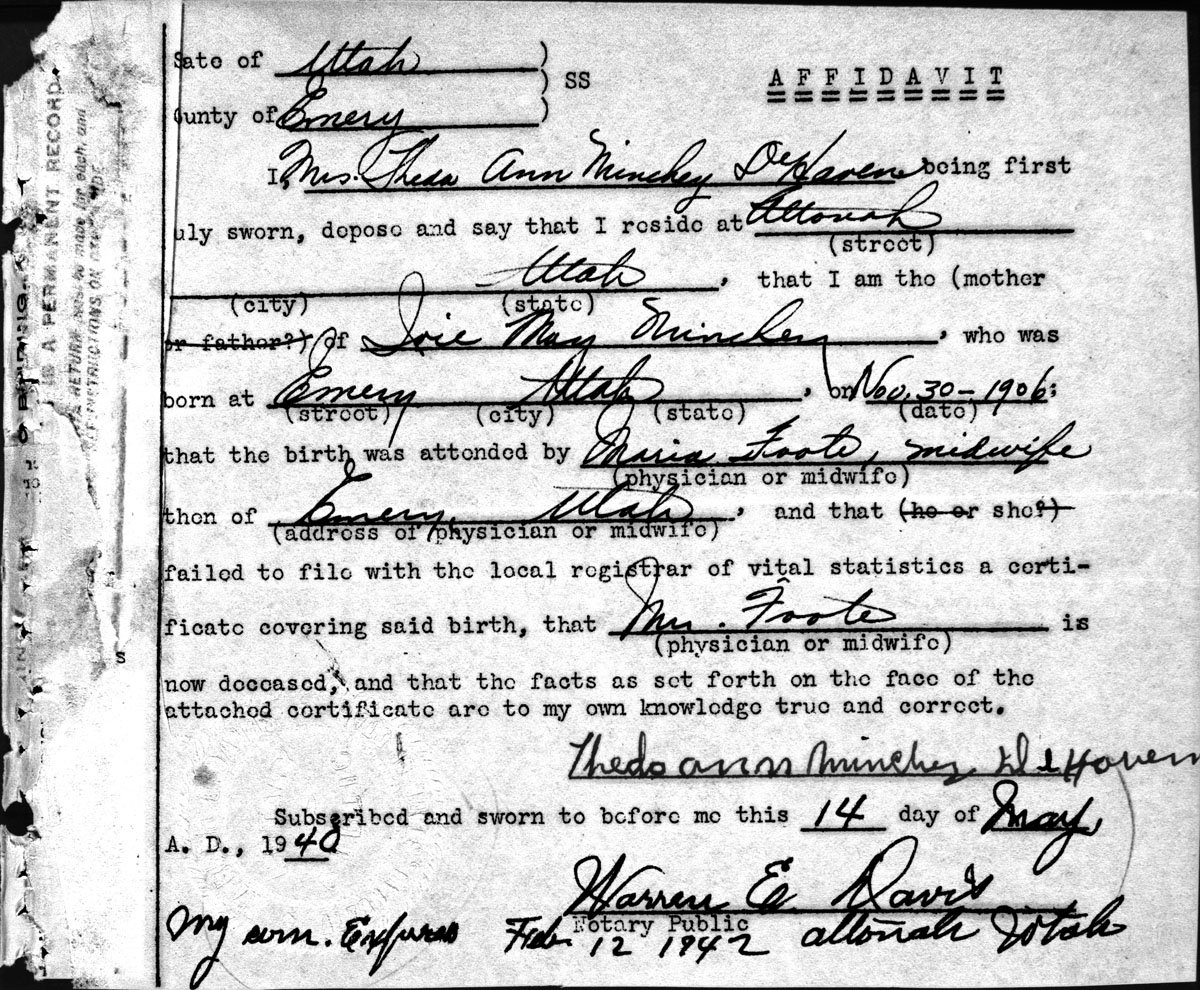 State of Utah )
) SS AFFIDAVIT
County of Emery )
I, Mrs. Theda Ann Minchey DeHaven being first
uly sworn, depose and say that I reside at Altonah
(street)
Utah, that I am the (mother
(city) (state)
or father?) of Ivie May Minchey, who was
born at Emery Utah, on Nov. 30 - 1906;
(street) (city) (state) (date)
that the birth was attended by Maria Foote, midwife
(physician or midwife)
then of Emery, Utah, and that (he or she?)
(address of physician or midwife)
failed to file with the local registrar of vital statistics a certi-
ficate covering said birth, that Mrs. Foote is
(physician or midwife)
now deceased, and that the facts as set forth on the face of the
attached certificate are to my own knowledge true and correct.
Theda ann Minchey DeHaven
Subscribed and sworn to before me this 14 day of May,
A. D., 1940
Warren E. Davis
Notary Public
My com. Expires Feb. 12 1942 altonah Utah
IS A PERMANENT RECORD.
A RETURN must be made for each, and